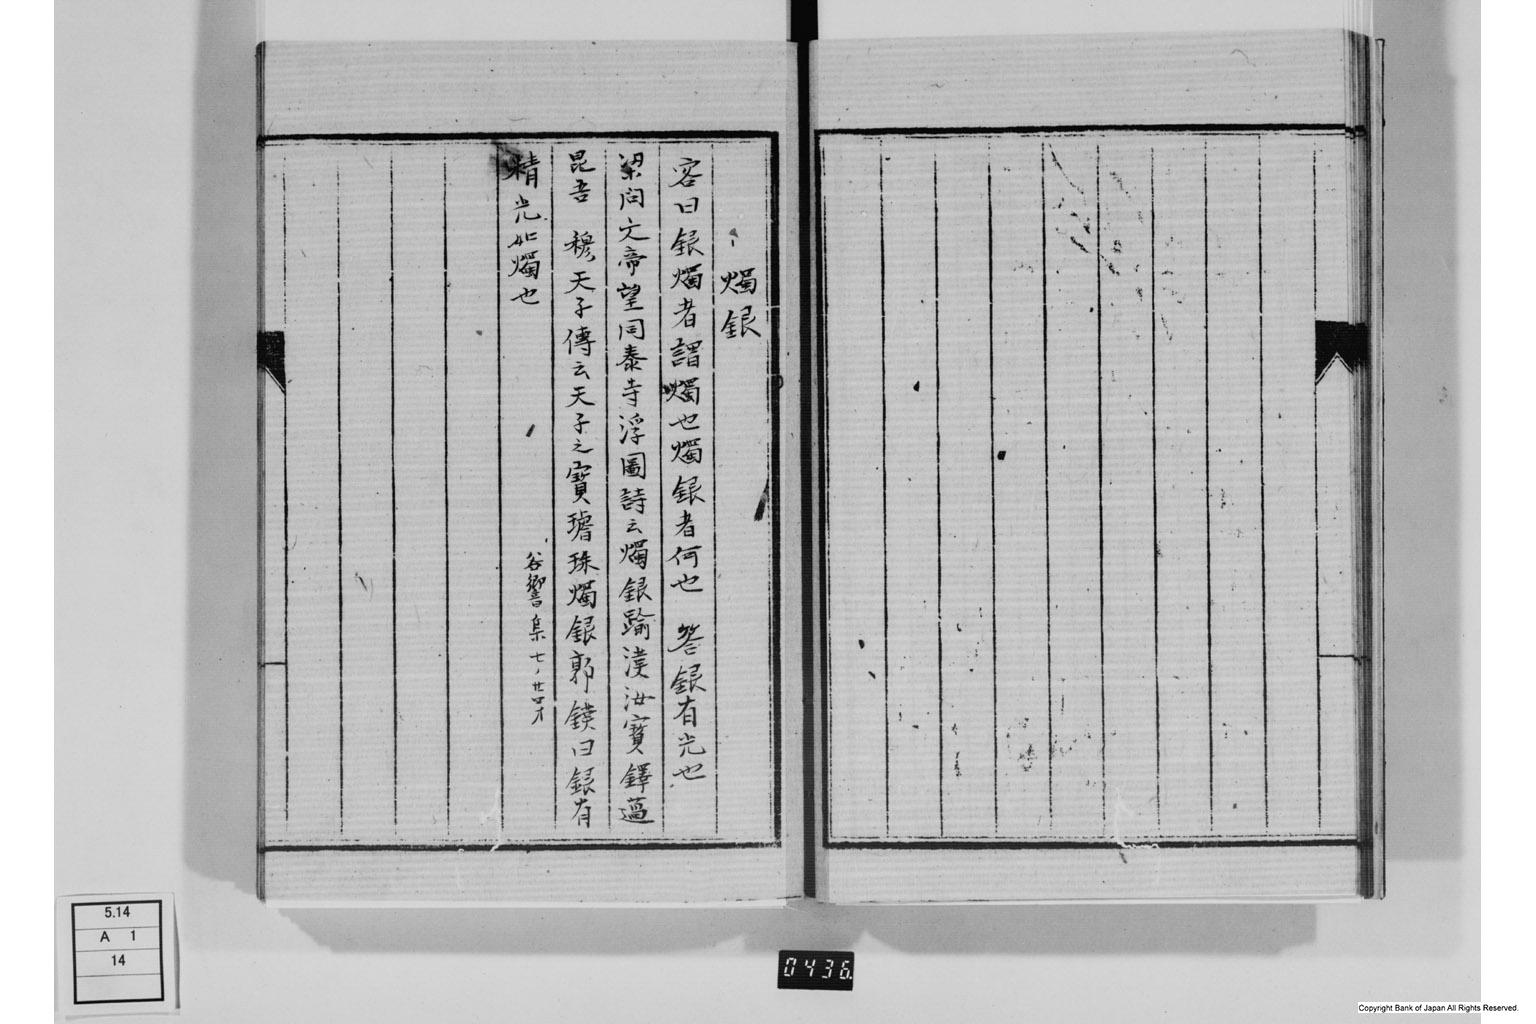 燭銀
客曰銀燭者謂燭也燭銀者何也　答銀有光也
梁間文帝望同泰寺浮圖詩云燭銀踰漢汝寶鐸邁
昆吾　穆天子傳云天子之寶璿珠燭銀郭鏷曰銀有
精光如燭也
谷響集七ノ廿四才
5.14
A 1
14
0436
Copyright Bank of Japan All Rights Reserved.